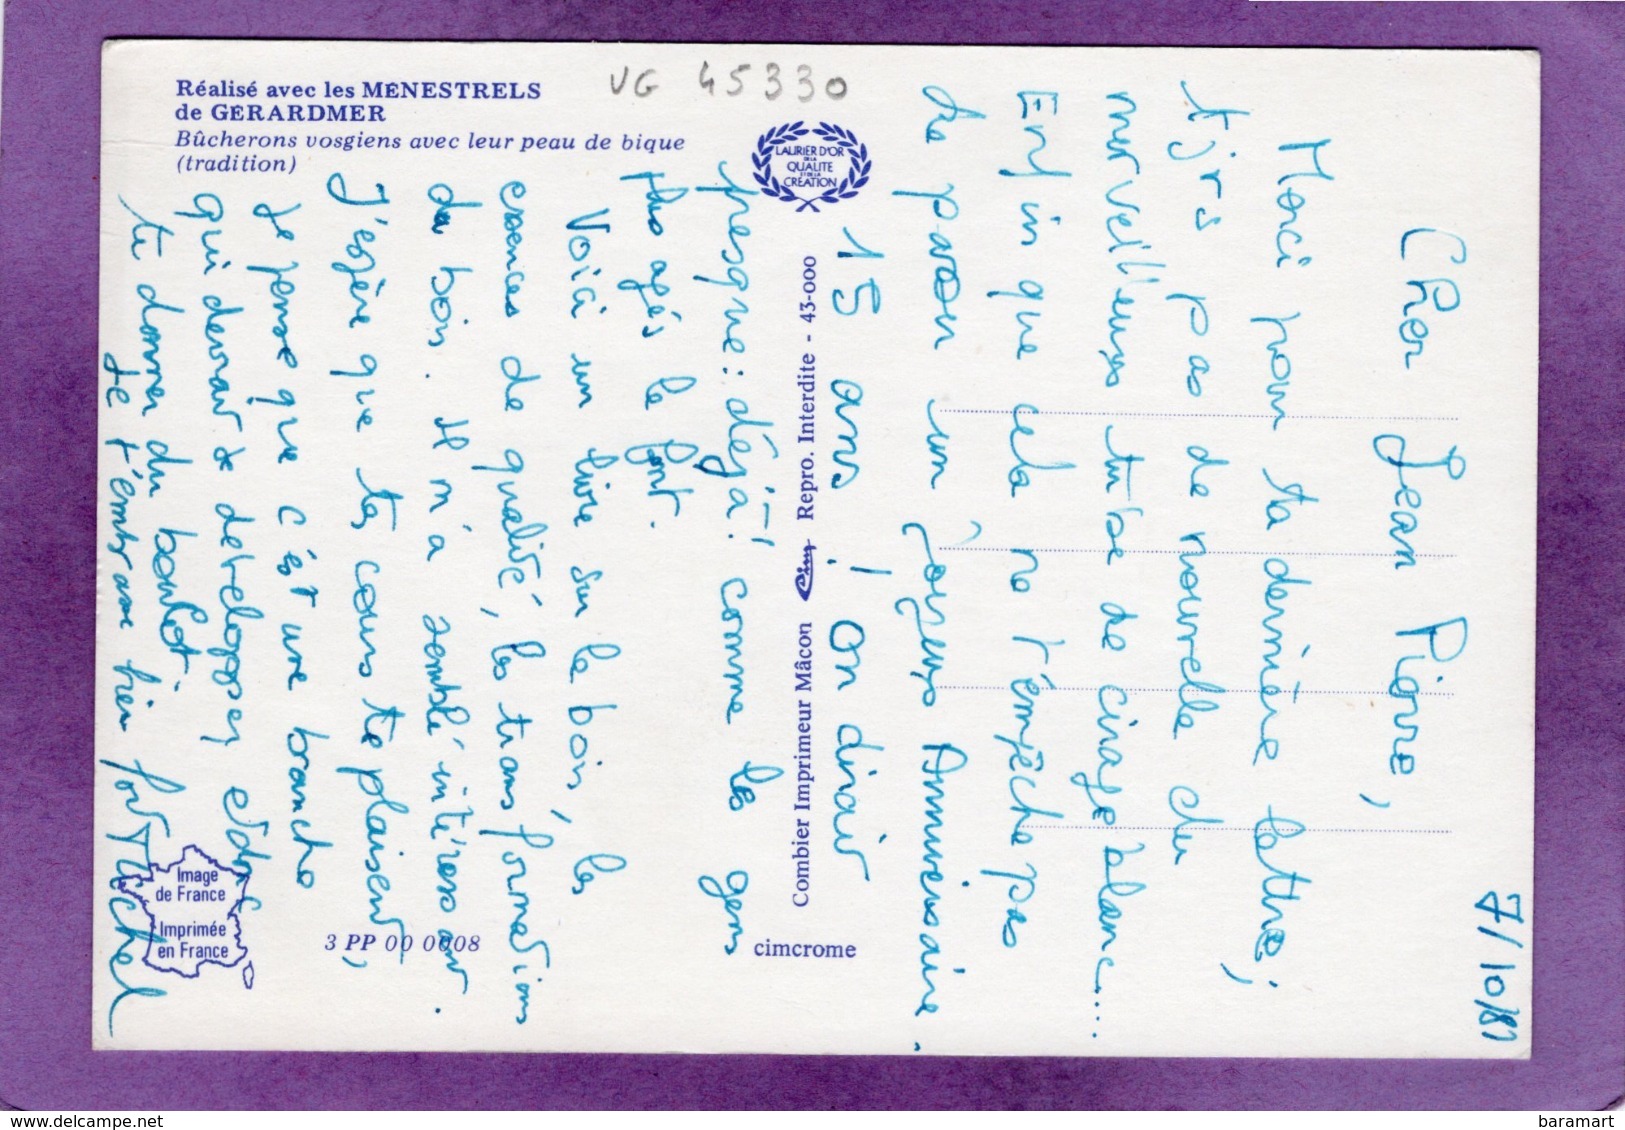 Réalisé avec les MÉNESTRELS
de GÉRARDMER
Bûcherons vosgiens avec leur peau de bique
(tradition)
VG 45330
LAURIER D'OR
DE LA
QUALITE
ET DE LA
CREATION
7/10/81
Cher Jean Pierre,
Merci pour ta dernière lettre,
tjrs pas de nouvelle du
merveilleux tube de cirage blanc...
Enfin que cela ne t'empêche pas
de passer un joyeux Anniversaire.
15 ans ! on dirait
presque : déjà ! comme les gens
plus agés le font.
Voici un livre sur le bois, les
essences de qualité, les transformations
du bois. Il m'a semblé intéressant.
J'espère que tes cours te plaisent,
je pense que c'est une branche
qui devrait se développer, et donc
te donner du boulot
Je t'embrasse bien fort Michel
Combier Imprimeur Mâcon Cim Repro. Interdite - 43-000
Image
de France
Imprimée
en France
3 PP 00 0008
cimcrome
http://www.delcampe.net
baramart